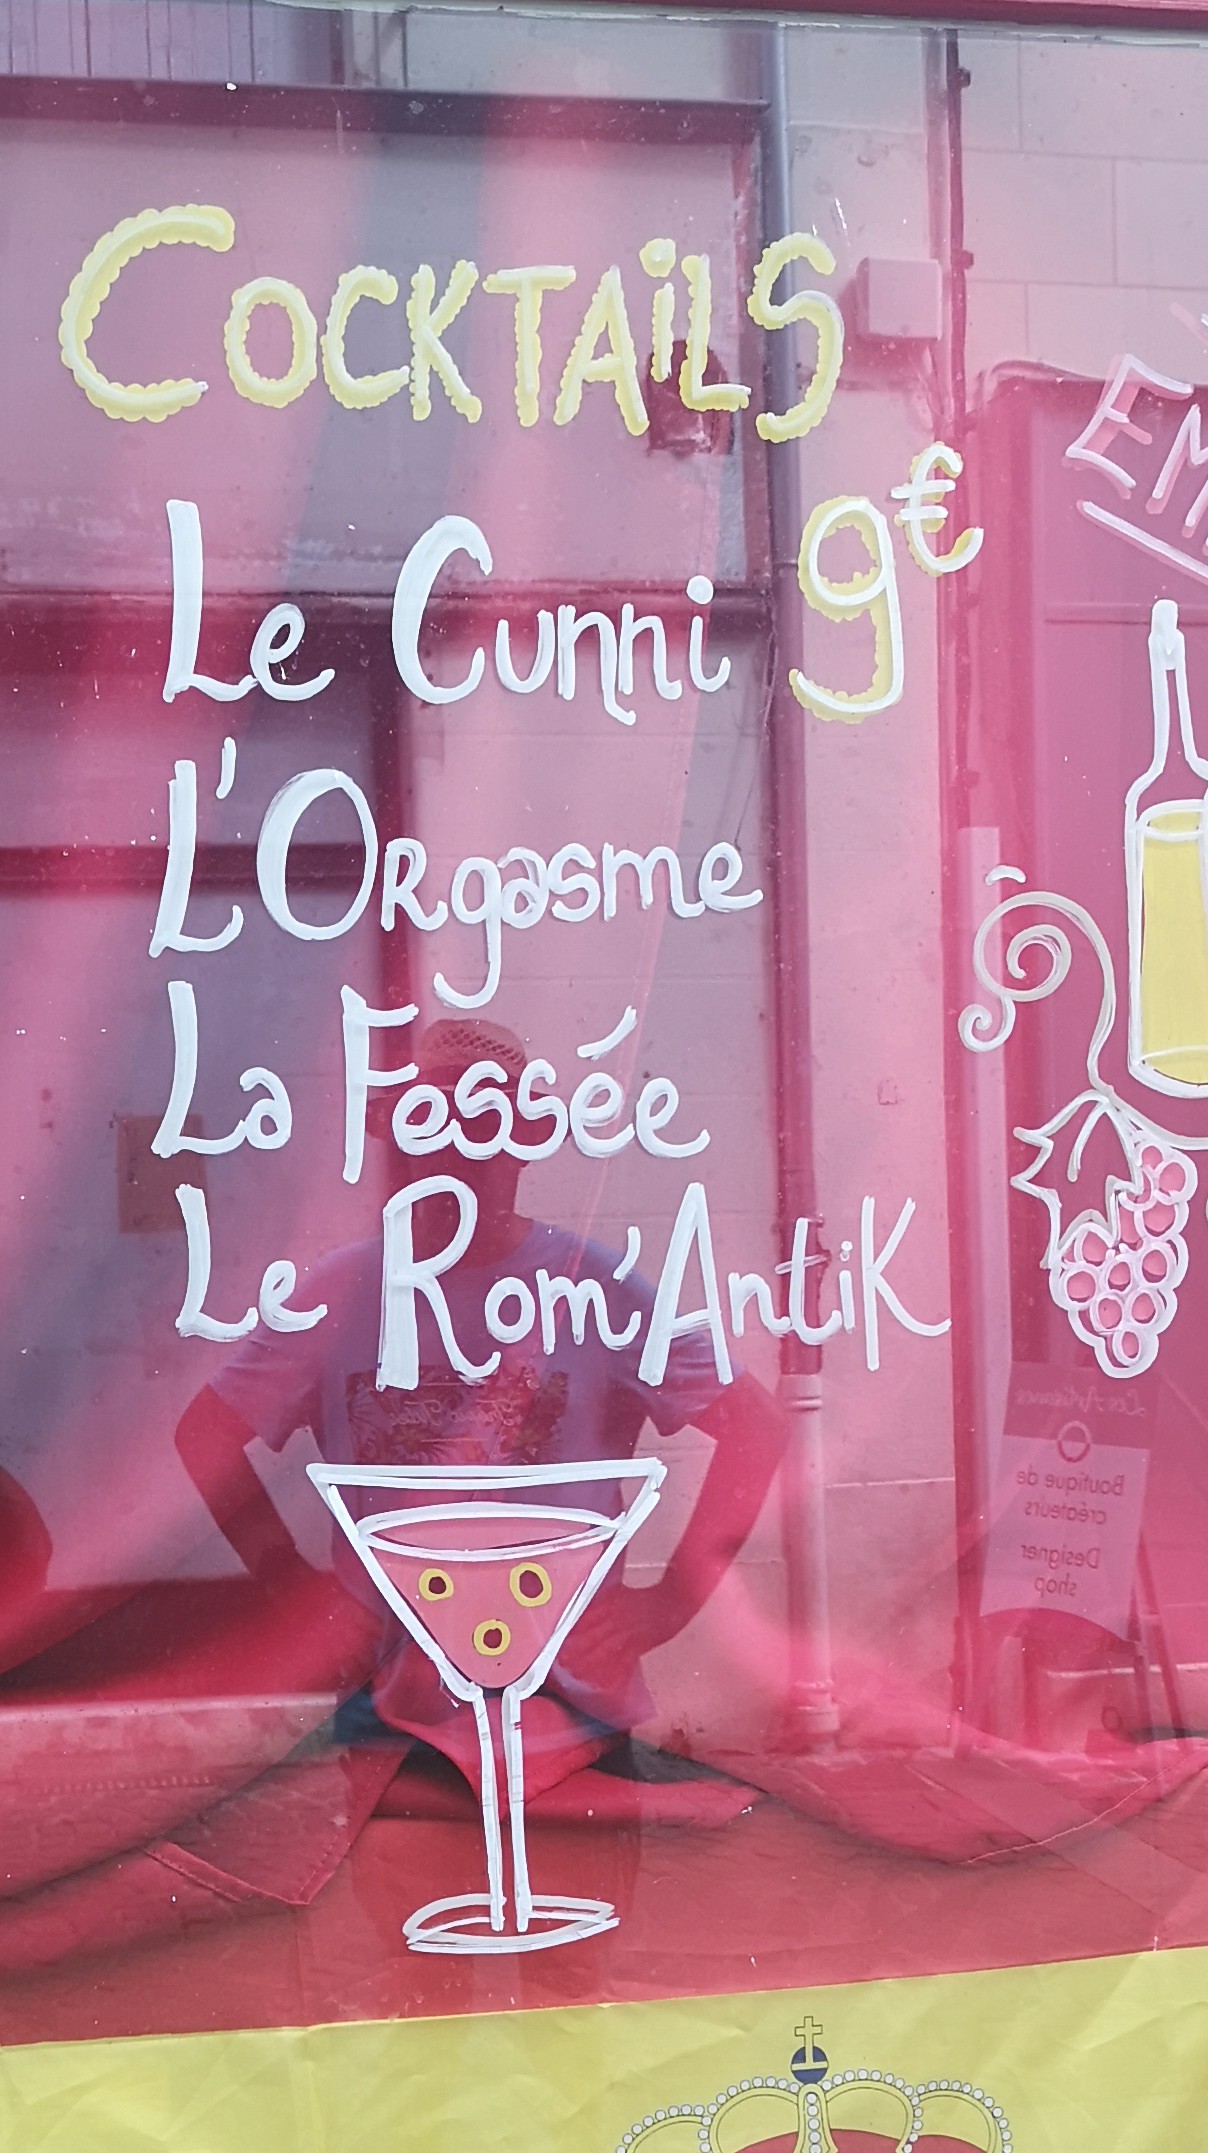 COCKTAiLS
9€
Le Cunni
L'Orgasme
La Fessée
Le Rom'AntiK
Boutique de
créateurs
Designer
shop